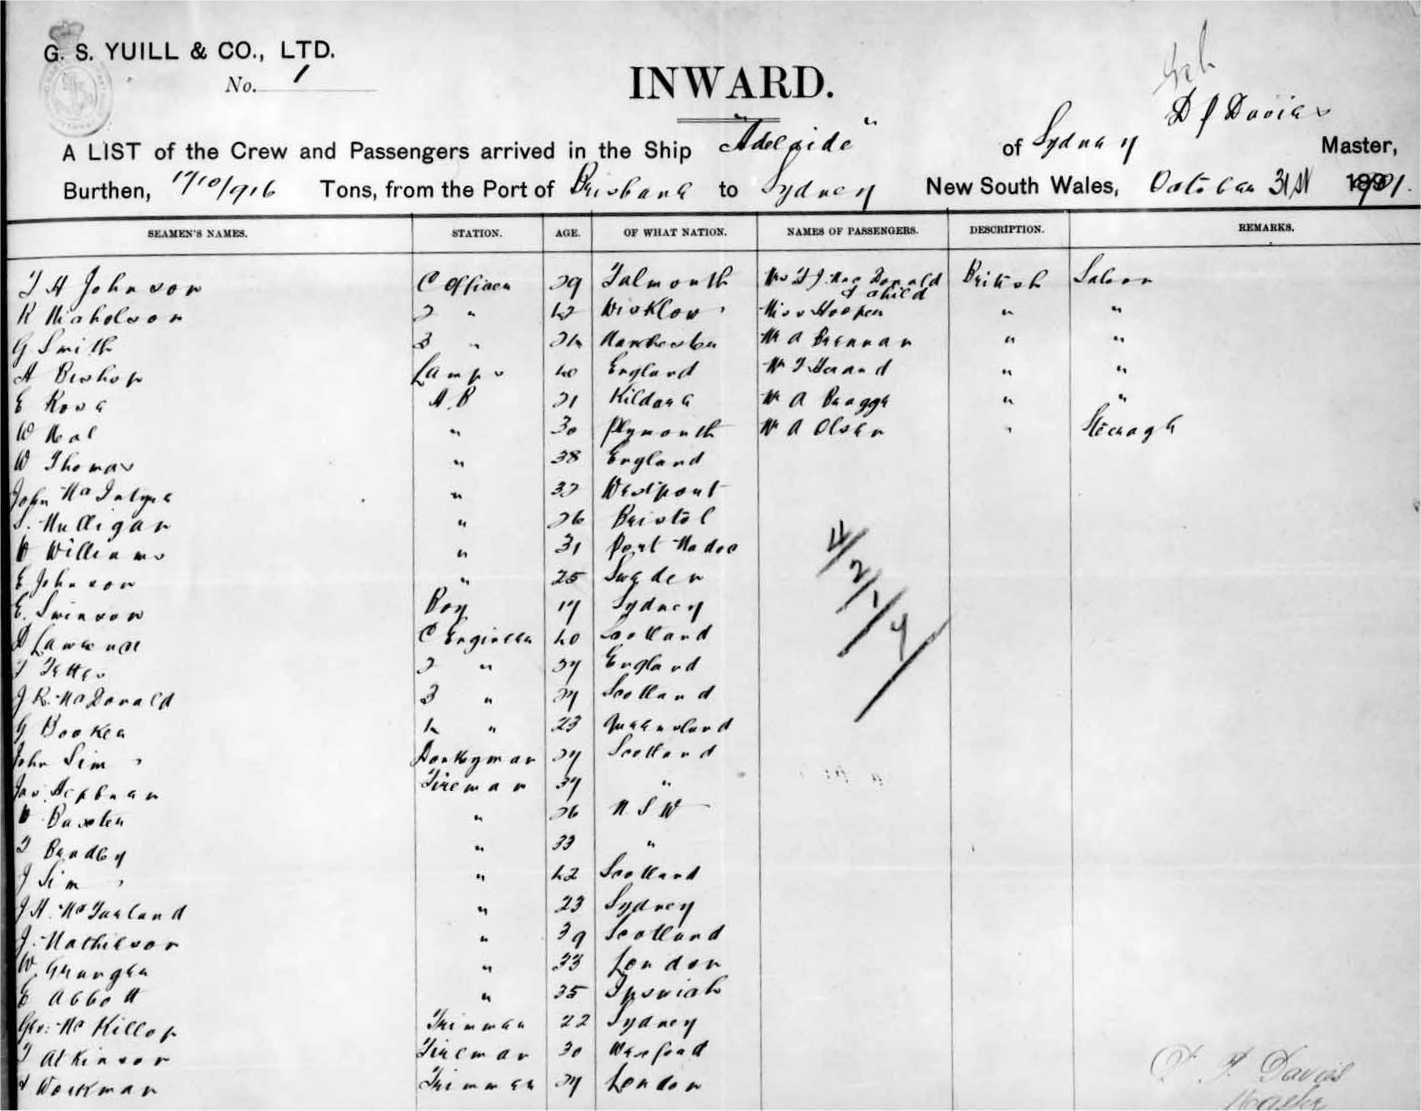 G. S. YUILL & CO., LTD.
No. 1
INWARD.
D J Davies
A LIST of the Crew and Passengers arrived in the Ship "Adelaide" of Sydney Master,
Burthen, 1710/916 Tons, from the Port of Brisbane to Sydney New South Wales, October 31st 1901.
SEAMEN'S NAMES. STATION. AGE. OF WHAT NATION. NAMES OF PASSENGERS. DESCRIPTION. REMARKS.
T H Johnson C Officer 29 Falmouth Mrs T J MacDonald & child British Saloon
R Nicholson 2 " 42 Wicklow Miss Hooper " "
G Smith 3 " 24 Manchester Mr A Brennan " "
A Bishop Lamps 40 England Mr T Herand " "
E Rowe A.B 21 Kildare Mr A Bragge " "
W Neal " 30 Plymouth Mr A Olsen " Steerage
W Thomas " 38 England
John McIntyre " 32 Westport
Mulligan " 26 Bristol
W Williams " 31 Port Madoc
E Johnson " 25 Sweden
E. Swinson Boy 17 Sydney
D Lawrence C Engineer 40 Scotland
2 " 37 England
J R. McDonald 3 " 27 Scotland
G Booker 4 " 23 Queensland
John Sim Donkeyman 27 Scotland
Jas. Hepburn Fireman 37 "
W Baxter " 26 N S W
T Bradley " 33 "
J Sim " 42 Scotland
J H. McFarland " 23 Sydney
J. Mathieson " 39 Scotland
W Granger " 33 London
E Abbott " 35 Ipswich
Geo: McKillop Trimmer 22 Sydney
T Atkinson Fireman 30 Wexford
Workman Trimmer 27 London
4/2/1/7
D J Davies
Master